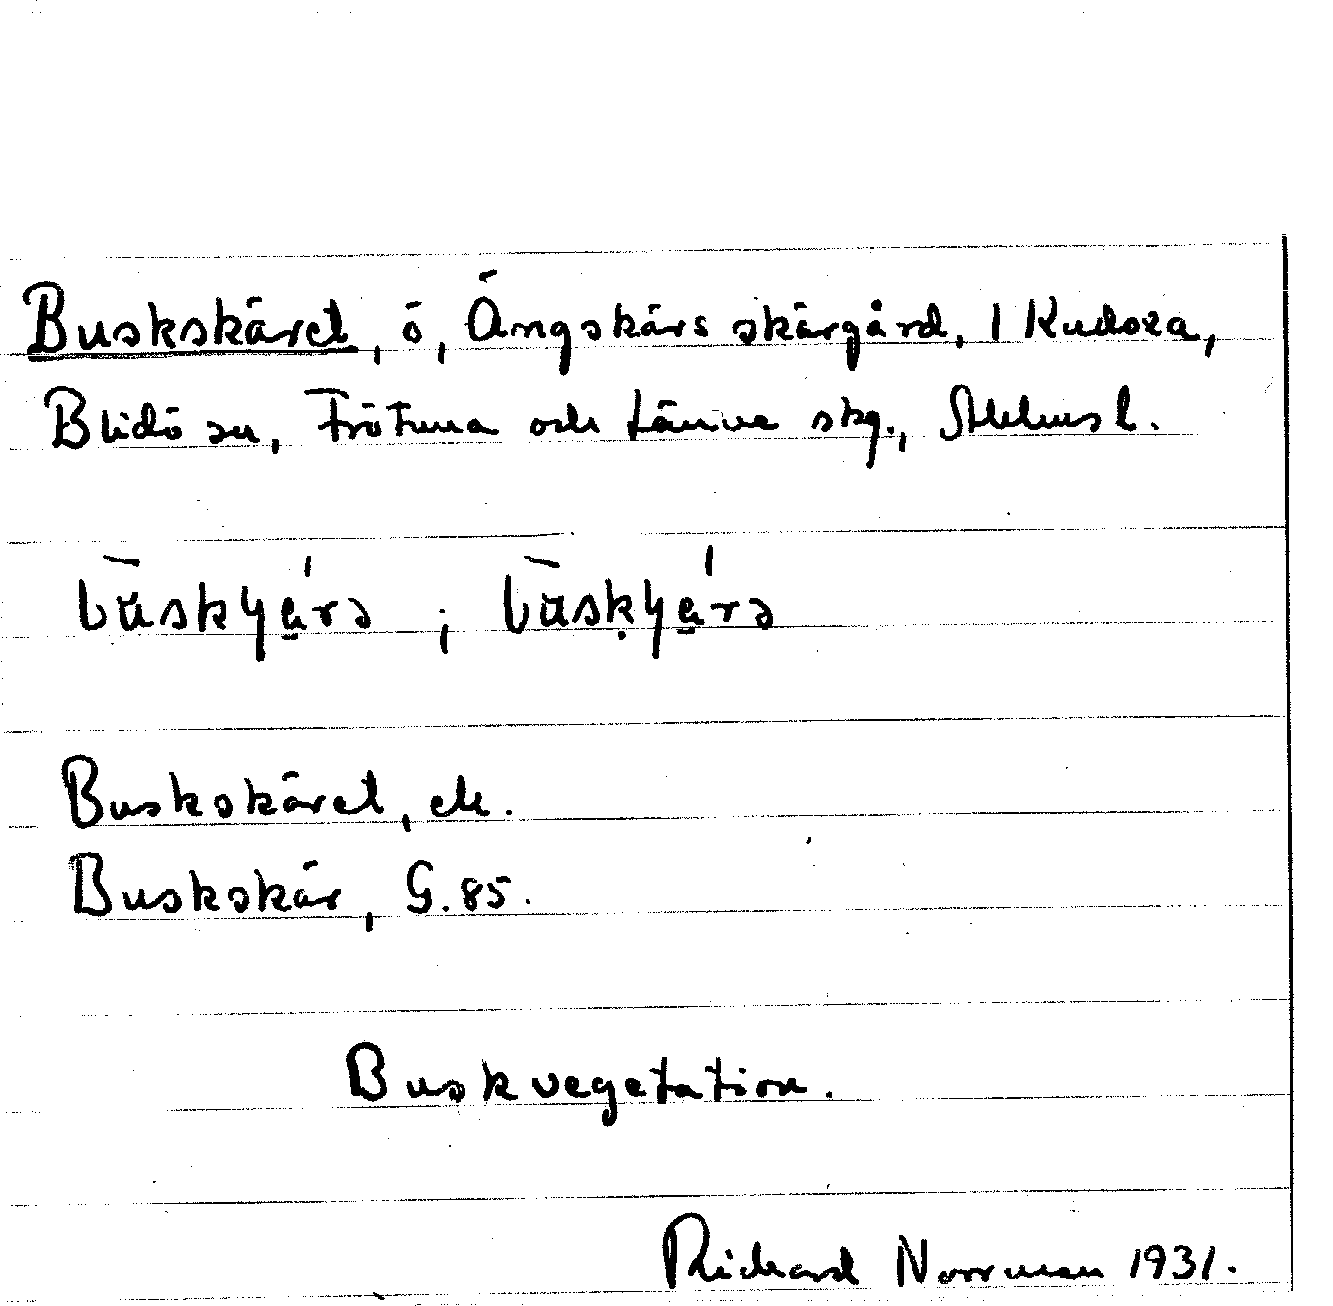 Buskskäret, ö, Ängskärs skärgård, 1 Kudoxa,
Blidö sn, Frötuna och Länna skg., Sthlms l.
Buskskäret, ek.
Buskskär, G. 85.
Buskvegetation.
Richard Norrman 1931.